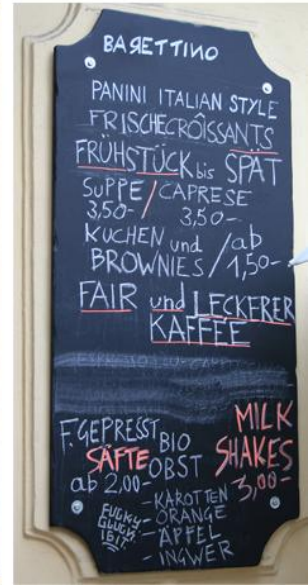 BARETTINO
PANINI ITALIAN STYLE
FRISCHE CRÔISSANTS
FRÜHSTÜCK bis SPÄT
SUPPE / CAPRESE
3,50- 3,50-
KUCHEN und / ab
BROWNIES 1,50-
FAIR und LECKERER
KAFFEE
F. GEPRESST BIO
SÄFTE OBST
ab 2,00-
MILK
SHAKES
3,00-
- KAROTTEN
- ORANGE
- APFEL
- INGWER